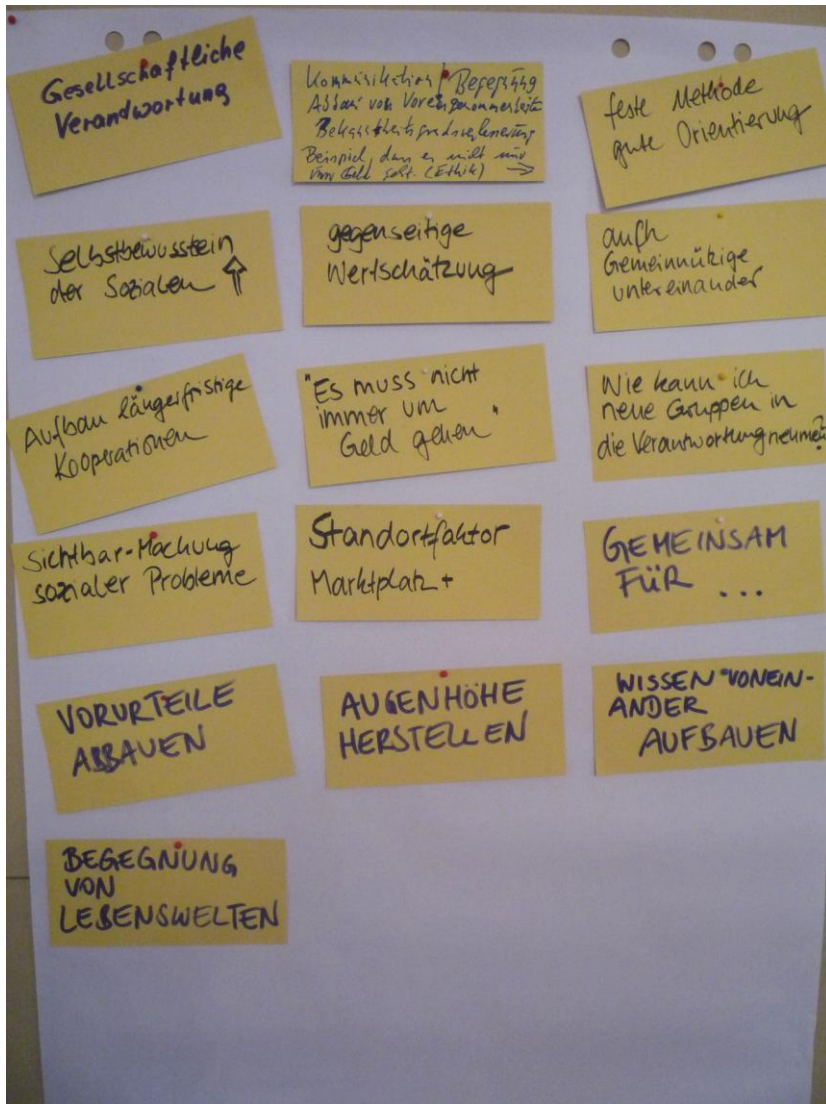 Gesellschaftliche
Verantwortung
Kommunikation / Begegnung
Abbau von Voreingenommenheiten
Bekanntheitsgradverbesserung
Beispiel, dass es nicht nur
um Geld geht. (Ethik) →
feste Methode
gute Orientierung
Selbstbewusstein
der Sozialen ⇑
gegenseitige
Wertschätzung
auch
Gemeinnützige
untereinander
Aufbau längerfristige
Kooperationen
"Es muss nicht
immer um
Geld gehen"
Wie kann ich
neue Gruppen in
die Verantwortung nehmen?
Sichtbar-Machung
sozialer Probleme
Standortfaktor
Marktplatz +
GEMEINSAM
FÜR ...
VORURTEILE
ABBAUEN
AUGENHÖHE
HERSTELLEN
WISSEN VONEIN-
ANDER
AUFBAUEN
BEGEGNUNG
VON
LEBENSWELTEN